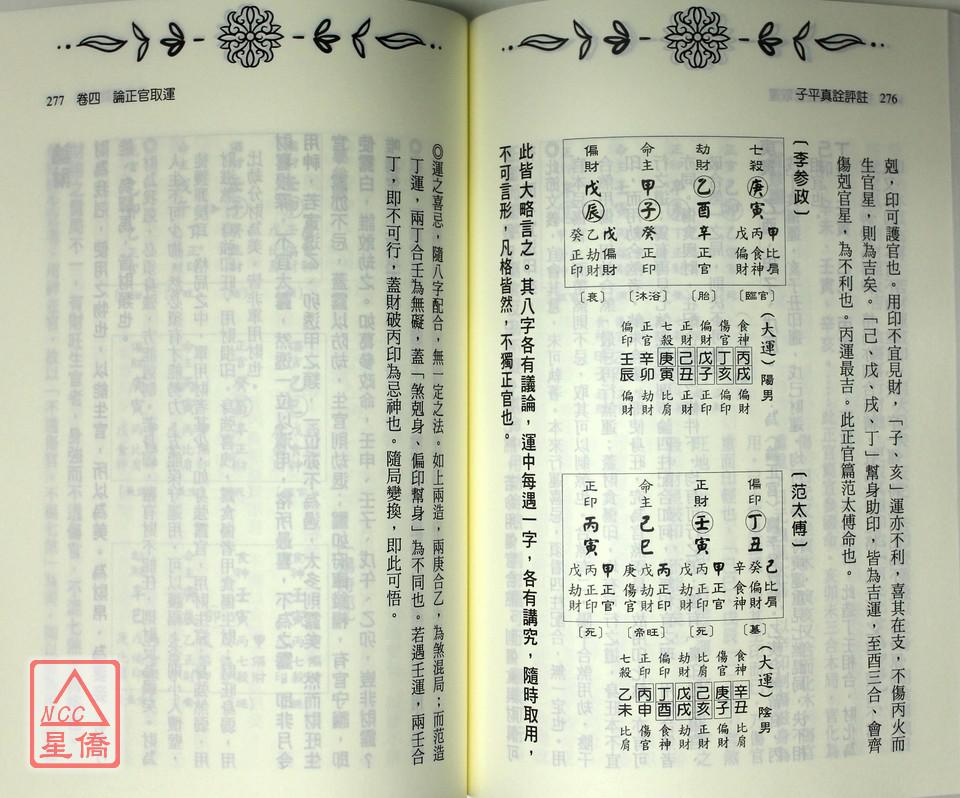 子平真詮評註　276
剋，印可護官也。用印不宜見財，「子、亥」運亦不利，喜其在支，不傷丙火而
生官星，則為吉矣。「己、戊、戌、丁」幫身助印，皆為吉運，至酉三合、會齊
傷剋官星，為不利也。丙運最吉。此正官篇范太傅命也。
〔李參政〕
七殺　庚寅　甲比肩　丙食神　戊偏財　〔臨官〕
劫財　乙酉　辛正官　〔胎〕
命主　甲子　癸正印　〔沐浴〕
偏財　戊辰　戊偏財　乙劫財　癸正印　〔衰〕
（大運）陽男
食神　丙戌　偏財
傷官　丁亥　偏印
偏財　戊子　正印
正財　己丑　正財
七殺　庚寅　比肩
正官　辛卯　劫財
偏印　壬辰　偏財
〔范太傅〕
偏印　丁丑　己比肩　癸偏財　辛食神　〔墓〕
正財　壬寅　甲正官　丙正印　戊劫財　〔死〕
命主　己巳　丙正印　戊劫財　庚傷官　〔帝旺〕
正印　丙寅　甲正官　丙正印　戊劫財　〔死〕
（大運）陰男
食神　辛丑　比肩
傷官　庚子　偏財
比肩　己亥　正財
劫財　戊戌　劫財
偏印　丁酉　食神
正印　丙申　傷官
七殺　乙未　比肩
此皆大略言之。其八字各有議論，運中每遇一字，各有講究，隨時取用，
不可言形，凡格皆然，不獨正官也。
277　卷四　論正官取運
◎運之喜忌，隨八字配合，無一定之法。如上兩造，兩庚合乙，為煞混局；而范造
丁運，兩丁合壬為無礙，蓋「煞剋身、偏印幫身」為不同也。若遇壬運，兩壬合
丁，即不可行，蓋財破丙印為忌神也。隨局變換，即此可悟。
NCC
星僑